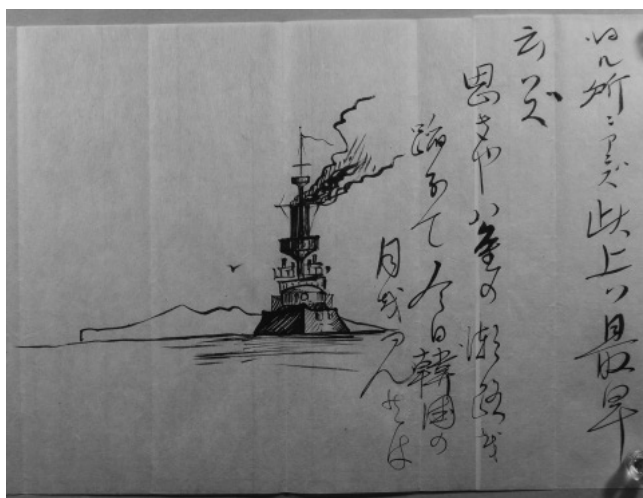 知ル所ニアラズ此上ハ最早
云ハズ
思きや八重の潮路を
踏分て今日韓国の
月をみんとは